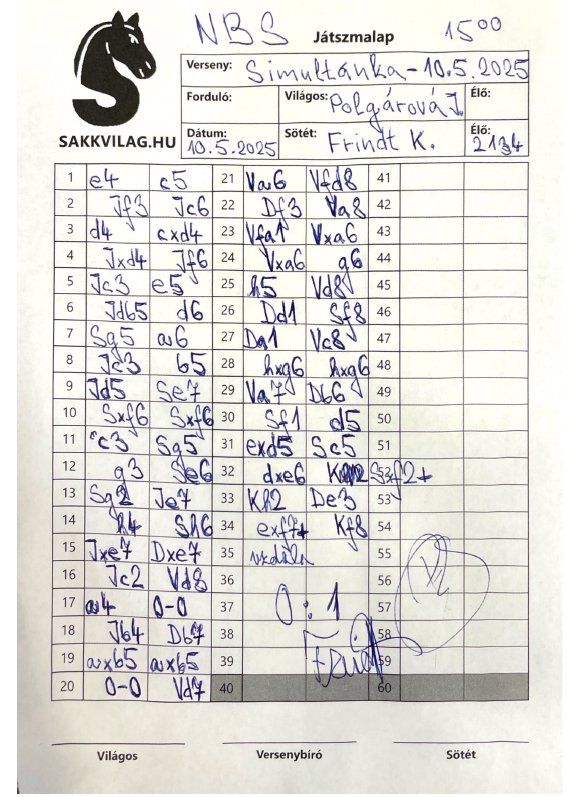 NBS Játszmalap 15⁰⁰
Verseny: Simultánka - 10.5.2025
Forduló: Világos: Polgárová J. Élő:
Dátum: 10.5.2025 Sötét: Frindt K. Élő: 2134
SAKKVILAG.HU
1 e4 c5 21 Va6 Vfd8 41
2 Jf3 Jc6 22 Df3 Va8 42
3 d4 cxd4 23 Vfa1 Vxa6 43
4 Jxd4 Jf6 24 Vxa6 g6 44
5 Jc3 e5 25 h5 Vd8 45
6 Jdb5 d6 26 Dd1 Sf8 46
7 Sg5 a6 27 Da1 Vc8 47
8 Ja3 b5 28 hxg6 hxg6 48
9 Jd5 Se7 29 Va7 Db6 49
10 Sxf6 Sxf6 30 Sf1 d5 50
11 c3 Sg5 31 exd5 Sc5 51
12 g3 Se6 32 dxe6 Sxf2+ 52
13 Sg2 Je7 33 Kh2 De3 53
14 h4 Sh6 34 exf7+ Kf8 54
15 Jxe7 Dxe7 35 vzdala 55
16 Jc2 Vd8 36 56
17 a4 0-0 37 0:1 57
18 Jb4 Db7 38 58
19 axb5 axb5 39 59
20 0-0 Vd7 40 60
Világos Versenybíró Sötét